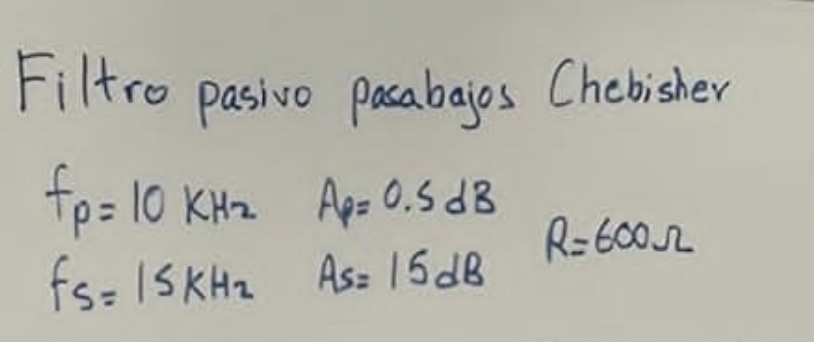 Filtro pasivo pasabajos Chebisher
fp= 10 KHz Ap= 0.5 dB
R=600Ω
fs= 15KHz As= 15dB